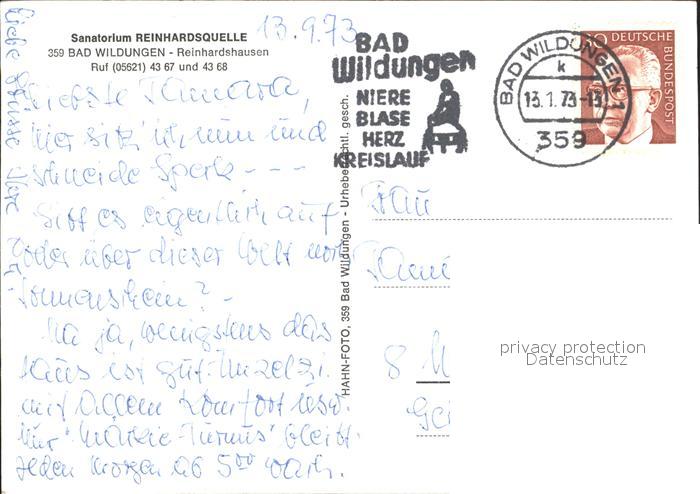 Sanatorium REINHARDSQUELLE
359 BAD WILDUNGEN - Reinhardshausen
Ruf (05621) 43 67 und 43 68
13.9.73
Liebste Tamara,
hier sitz' ich nun und
schneide Speck - - -
Gibt es eigentlich auf
oder über dieser Welt noch
Sonnenschein? -
Na ja, wenigstens das
Haus ist gut. Einzelzi.
mit allem Komfort usw.
Nur bleibt.
Jeden Morgen ab 5⁰⁰ wach.
Liebe Grüsse
HAHN-FOTO, 359 Bad Wildungen - Urheberrechtl. gesch.
BAD
Wildungen
NIERE
BLASE
HERZ
KREISLAUF
BAD WILDUNGEN 1
k
13.1.73-13
359
DEUTSCHE
BUNDESPOST
Frau
8 M
privacy protection
Datenschutz